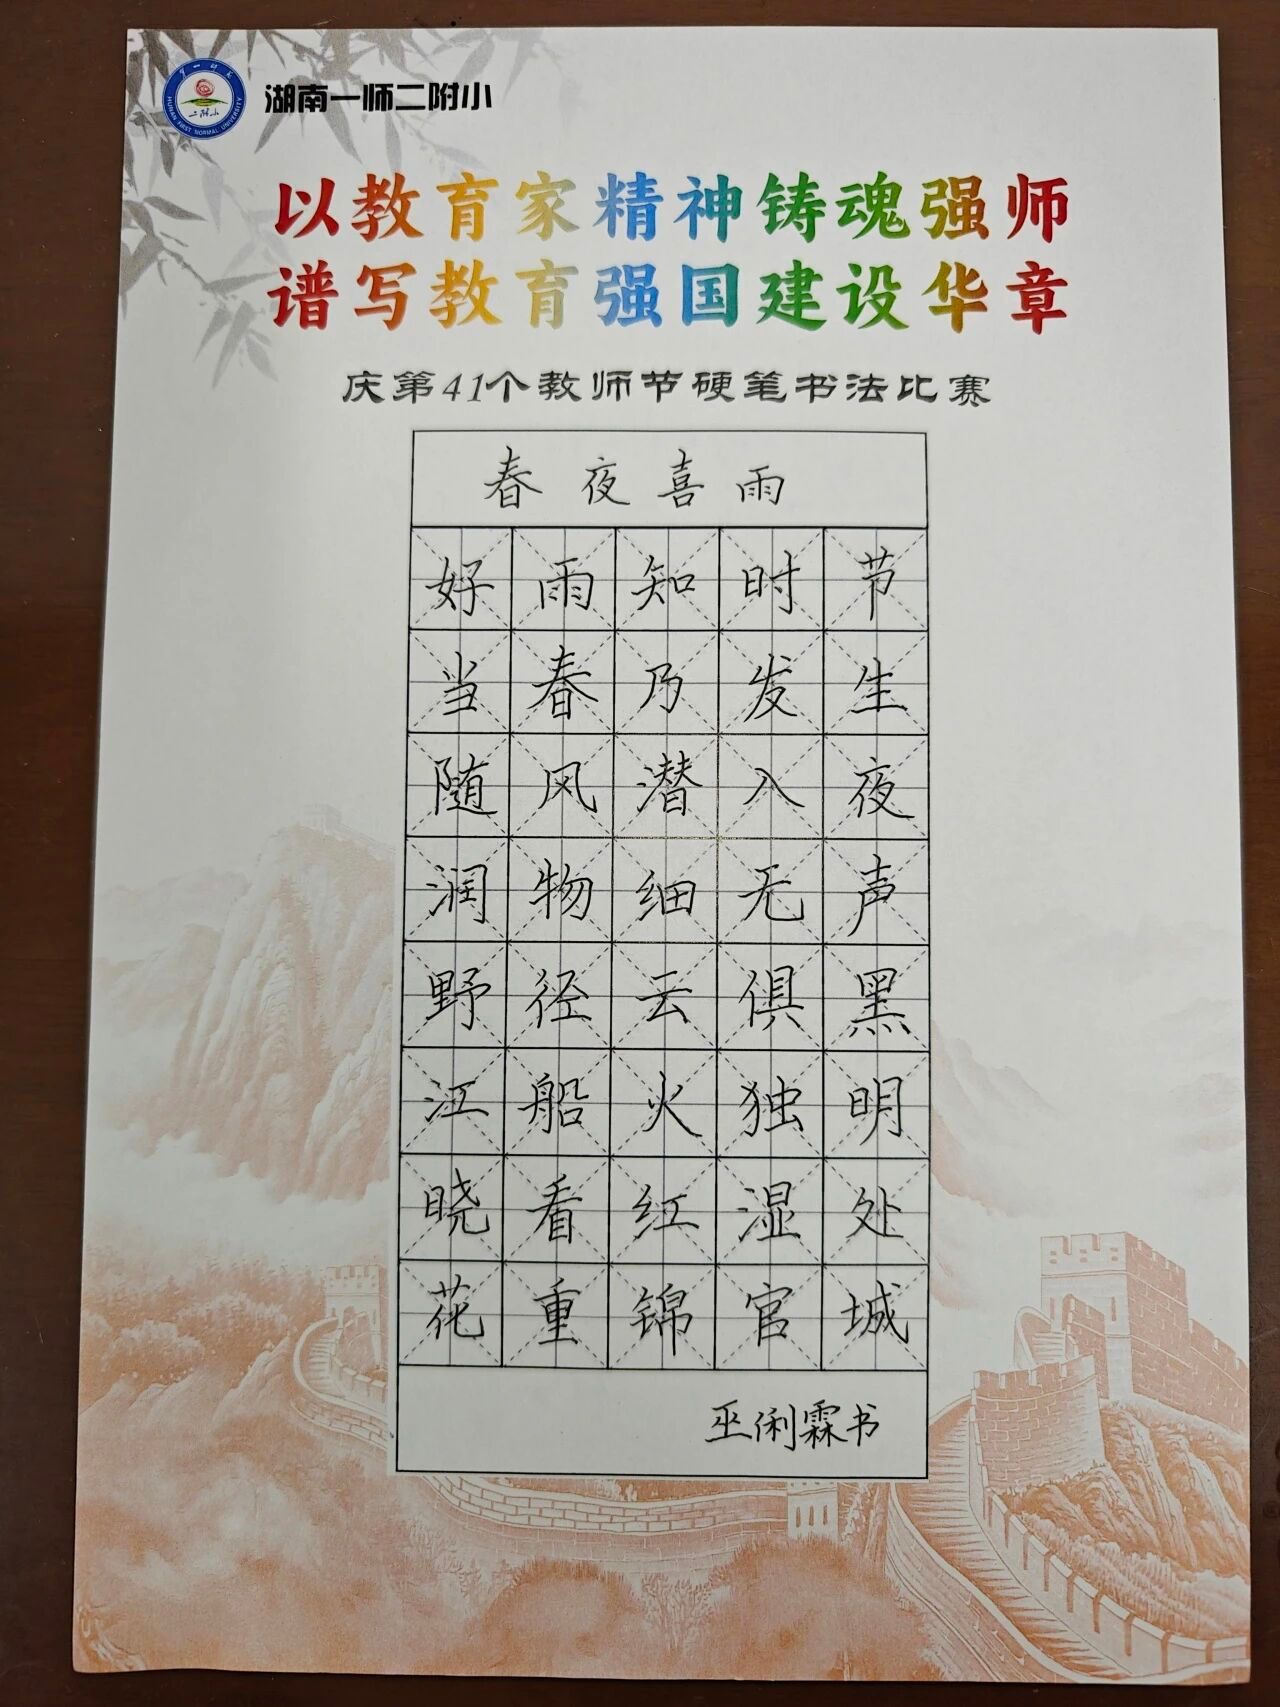 湖南一师二附小
二附小
HUNAN FIRST NORMAL UNIVERSITY
以教育家精神铸魂强师
谱写教育强国建设华章
庆第41个教师节硬笔书法比赛
春夜喜雨
好雨知时节
当春乃发生
随风潜入夜
润物细无声
野径云俱黑
江船火独明
晓看红湿处
花重锦官城
巫俐霖书